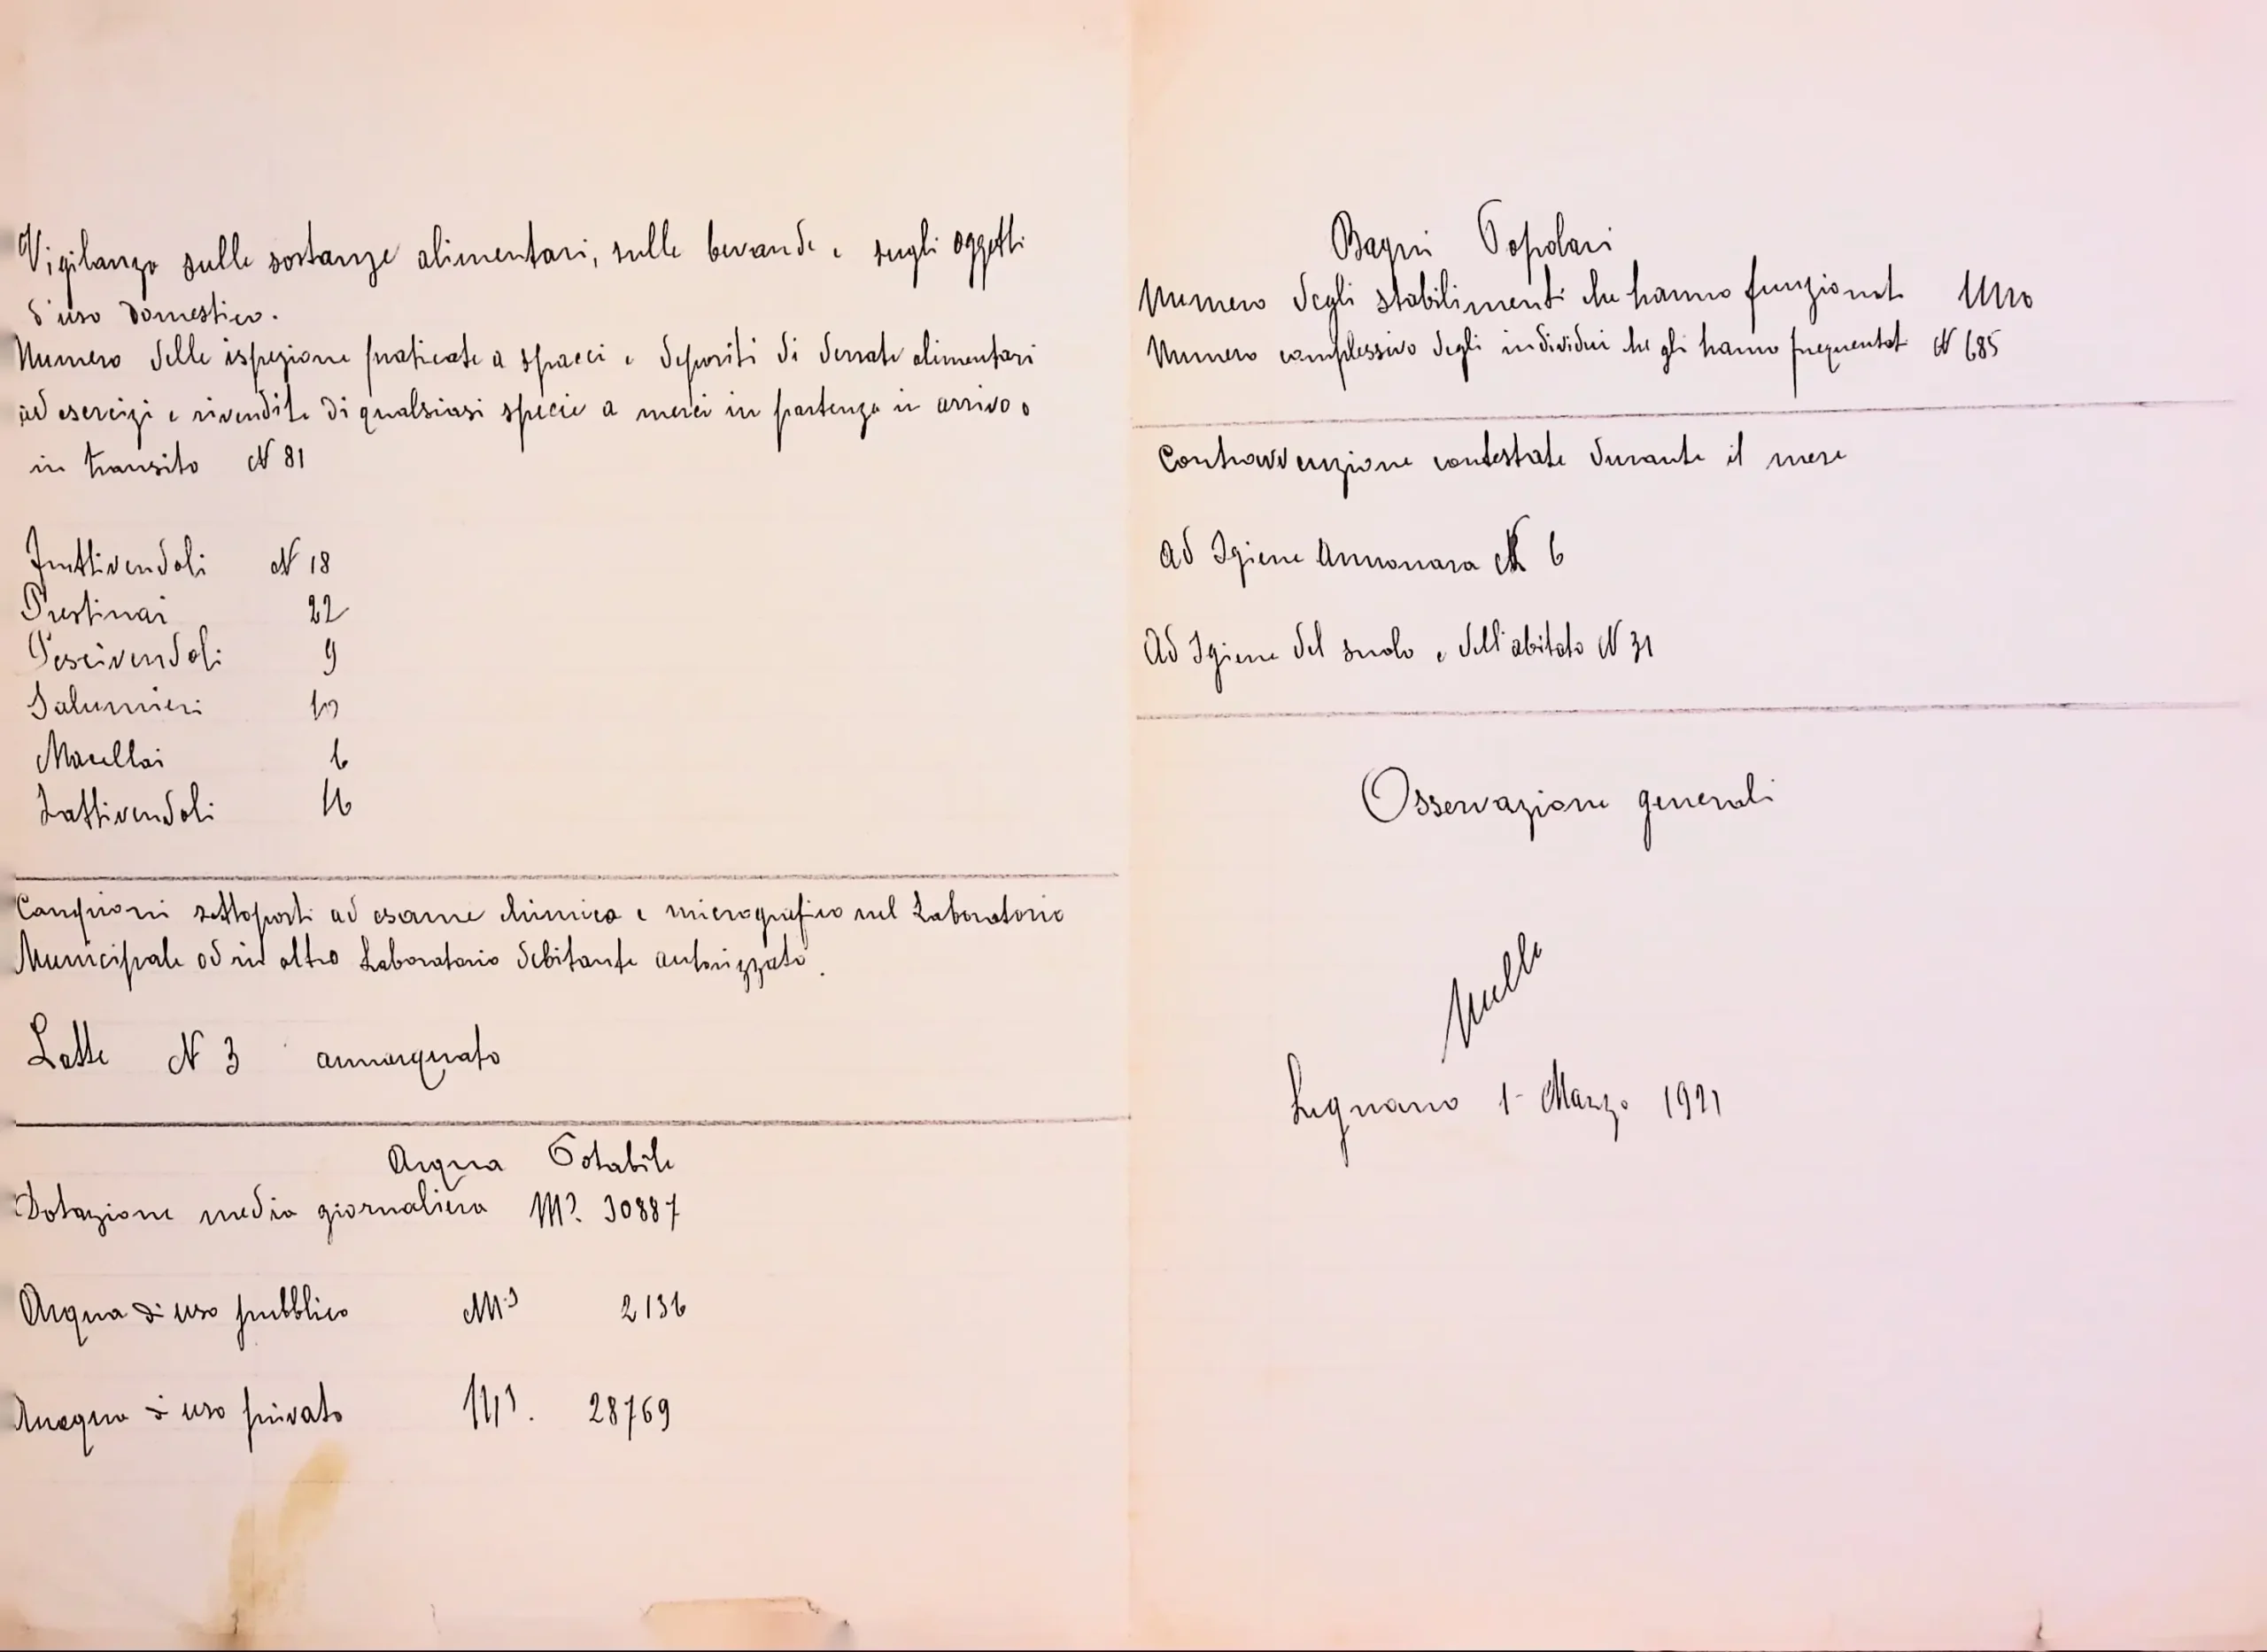 Vigilanza sulle sostanze alimentari, sulle bevande e sugli oggetti
d'uso domestico.
Numero delle ispezione praticate a spacci e depositi di derrate alimentari
ad esercizi e rivendite di qualsiasi specie a merci in partenza in arrivo o
in transito N 81
Fruttivendoli N 18
Prestinai 22
Pescivendoli 9
Salumieri 10
Macellai 6
Lattivendoli 16
Campioni sottoposti ad esame chimico e micrografico nel Laboratorio
Municipale od in altro Laboratorio debitante autorizzato.
Latte N 3 annacquato
Acqua Potabile
Dotazione media giornaliera M3. 30887
Acqua di uso pubblico M3 2136
Acqua di uso privato M3. 28769
Bagni Popolari
Numero degli stabilimenti che hanno funzionato Uno
Numero complessivo degli individui che gli hanno frequentati N 685
Contravvenzione contestate durante il mese
Ad Igiene Annonara N 6
Ad Igiene del suolo e dell'abitato N 31
Osservazione generali
Nulle
Legnano 1- Marzo 1921